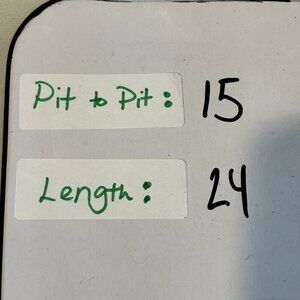 Pit to Pit: 15
Length: 24